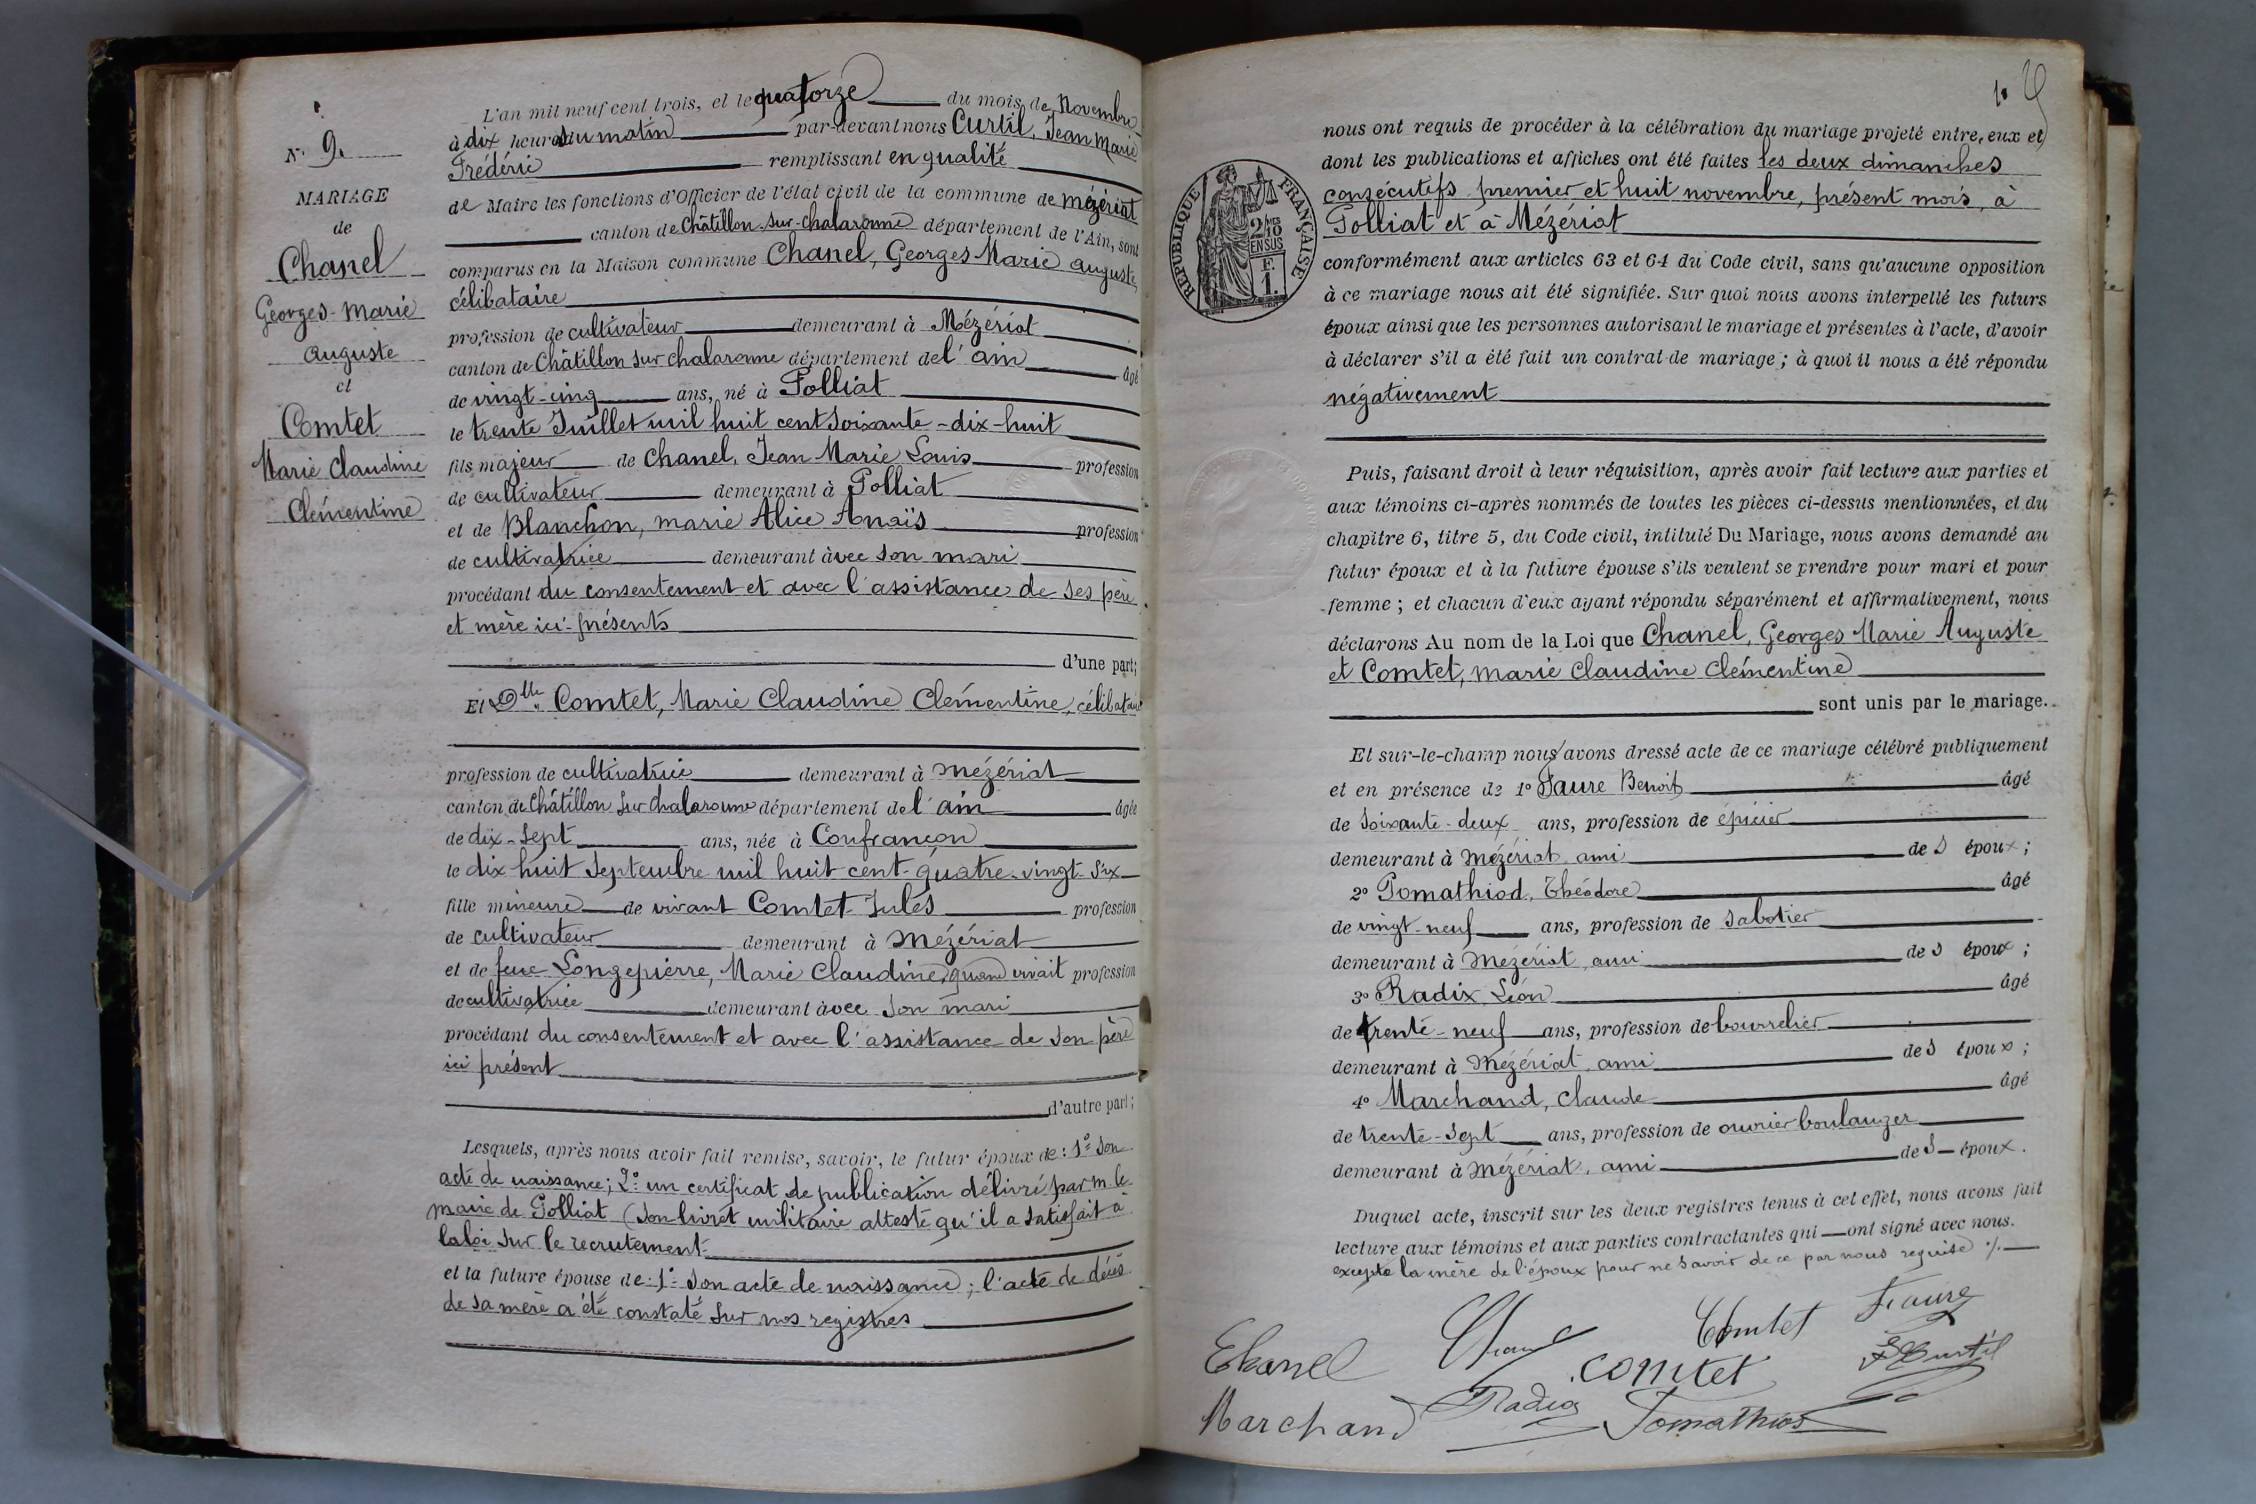 N° 9.
MARIAGE
de
Chanel
Georges-Marie
Auguste
et
Comtet
Marie Claudine
Clémentine
L'an mil neuf cent trois, et le quatorze du mois de Novembre
à dix heures du matin par-devant nous Curtil, Jean Marie
Frédéric remplissant en qualité
de Maire les fonctions d'Officier de l'état civil de la commune de Mézériat
canton de Châtillon-sur-Chalaronne département de l'Ain, sont
comparus en la Maison commune Chanel, Georges Marie Auguste,
célibataire
profession de cultivateur demeurant à Mézériat
canton de Châtillon sur Chalaronne département de l'Ain âgé
de vingt-cinq ans, né à Polliat
le trente Juillet mil huit cent soixante-dix-huit
fils majeur de Chanel, Jean-Marie Louis profession
de cultivateur demeurant à Polliat
et de Blanchon, Marie Alice Anaïs profession
de cultivatrice demeurant avec son mari
procédant du consentement et avec l'assistance de ses père
et mère ici-présents
d'une part;
Et Dlle Comtet, Marie Claudine Clémentine, célibataire
profession de cultivatrice demeurant à Mézériat
canton de Châtillon sur Chalaronne département de l'Ain âgée
de dix-sept ans, née à Confrançon
le dix huit Septembre mil huit cent-quatre-vingt-six
fille mineure de vivant Comtet Jules profession
de cultivateur demeurant à Mézériat
et de feue Longepierre, Marie Claudine, quand vivait profession
de cultivatrice demeurant avec son mari
procédant du consentement et avec l'assistance de son père
ici présent
d'autre part;
Lesquels, après nous avoir fait remise, savoir, le futur époux de: 1° Son
acte de naissance; 2° un certificat de publication délivré par M. le
maire de Polliat (Son livret militaire atteste qu'il a satisfait à
la loi sur le recrutement
et la future épouse de: 1° Son acte de naissance; l'acte de décès
de sa mère a été constaté sur nos registres
nous ont requis de procéder à la célébration du mariage projeté entre eux et
dont les publications et affiches ont été faites les deux dimanches
consécutifs premier et huit novembre, présent mois, à
Polliat et à Mézériat
RÉPUBLIQUE FRANÇAISE
2/10
EN SUS
F.
1.
conformément aux articles 63 et 64 du Code civil, sans qu'aucune opposition
à ce mariage nous ait été signifiée. Sur quoi nous avons interpellé les futurs
époux ainsi que les personnes autorisant le mariage et présentes à l'acte, d'avoir
à déclarer s'il a été fait un contrat de mariage; à quoi il nous a été répondu
négativement
Puis, faisant droit à leur réquisition, après avoir fait lecture aux parties et
aux témoins ci-après nommés de toutes les pièces ci-dessus mentionnées, et du
chapitre 6, titre 5, du Code civil, intitulé Du Mariage, nous avons demandé au
futur époux et à la future épouse s'ils veulent se prendre pour mari et pour
femme; et chacun d'eux ayant répondu séparément et affirmativement, nous
déclarons Au nom de la Loi que Chanel, Georges Marie Auguste
et Comtet, Marie Claudine Clémentine
sont unis par le mariage.
Et sur-le-champ nous avons dressé acte de ce mariage célébré publiquement
et en présence de 1° Faure Benoit âgé
de soixante-deux ans, profession de épicier
demeurant à Mézériat, ami des époux;
2° Pomathiod, Théodore âgé
de vingt-neuf ans, profession de sabotier
demeurant à Mézériat, ami des époux;
3° Radix, Léon âgé
de trente-neuf ans, profession de bourrelier
demeurant à Mézériat, ami des époux;
4° Marchand, Claude âgé
de trente-sept ans, profession de ouvrier boulanger
demeurant à Mézériat, ami des époux.
Duquel acte, inscrit sur les deux registres tenus à cet effet, nous avons fait
lecture aux témoins et aux parties contractantes qui ont signé avec nous.
excepté la mère de l'époux pour ne savoir de ce par nous requise ./.
Chanel Comtet Faure
Chanel comtet Curtil
Marchand Radix Pomathiod